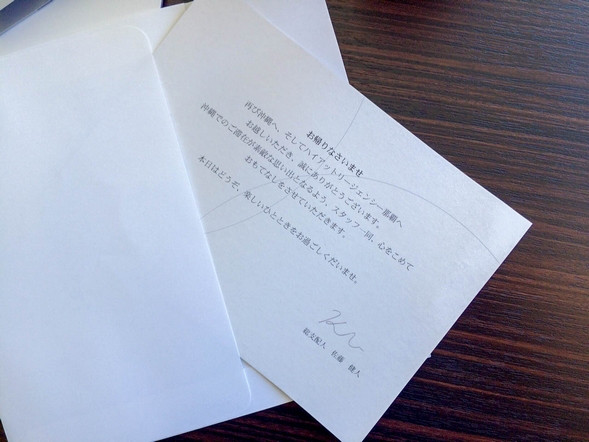 お帰りなさいませ
再び沖縄へ、そしてハイアットリージェンシー那覇へ
お越しいただき、誠にありがとうございます。
沖縄でのご滞在が素敵な思い出となるよう、スタッフ一同、心をこめて
おもてなしをさせていただきます。
本日はどうぞ、楽しいひとときをお過ごしくだいませ。
総支配人 佐藤 健人